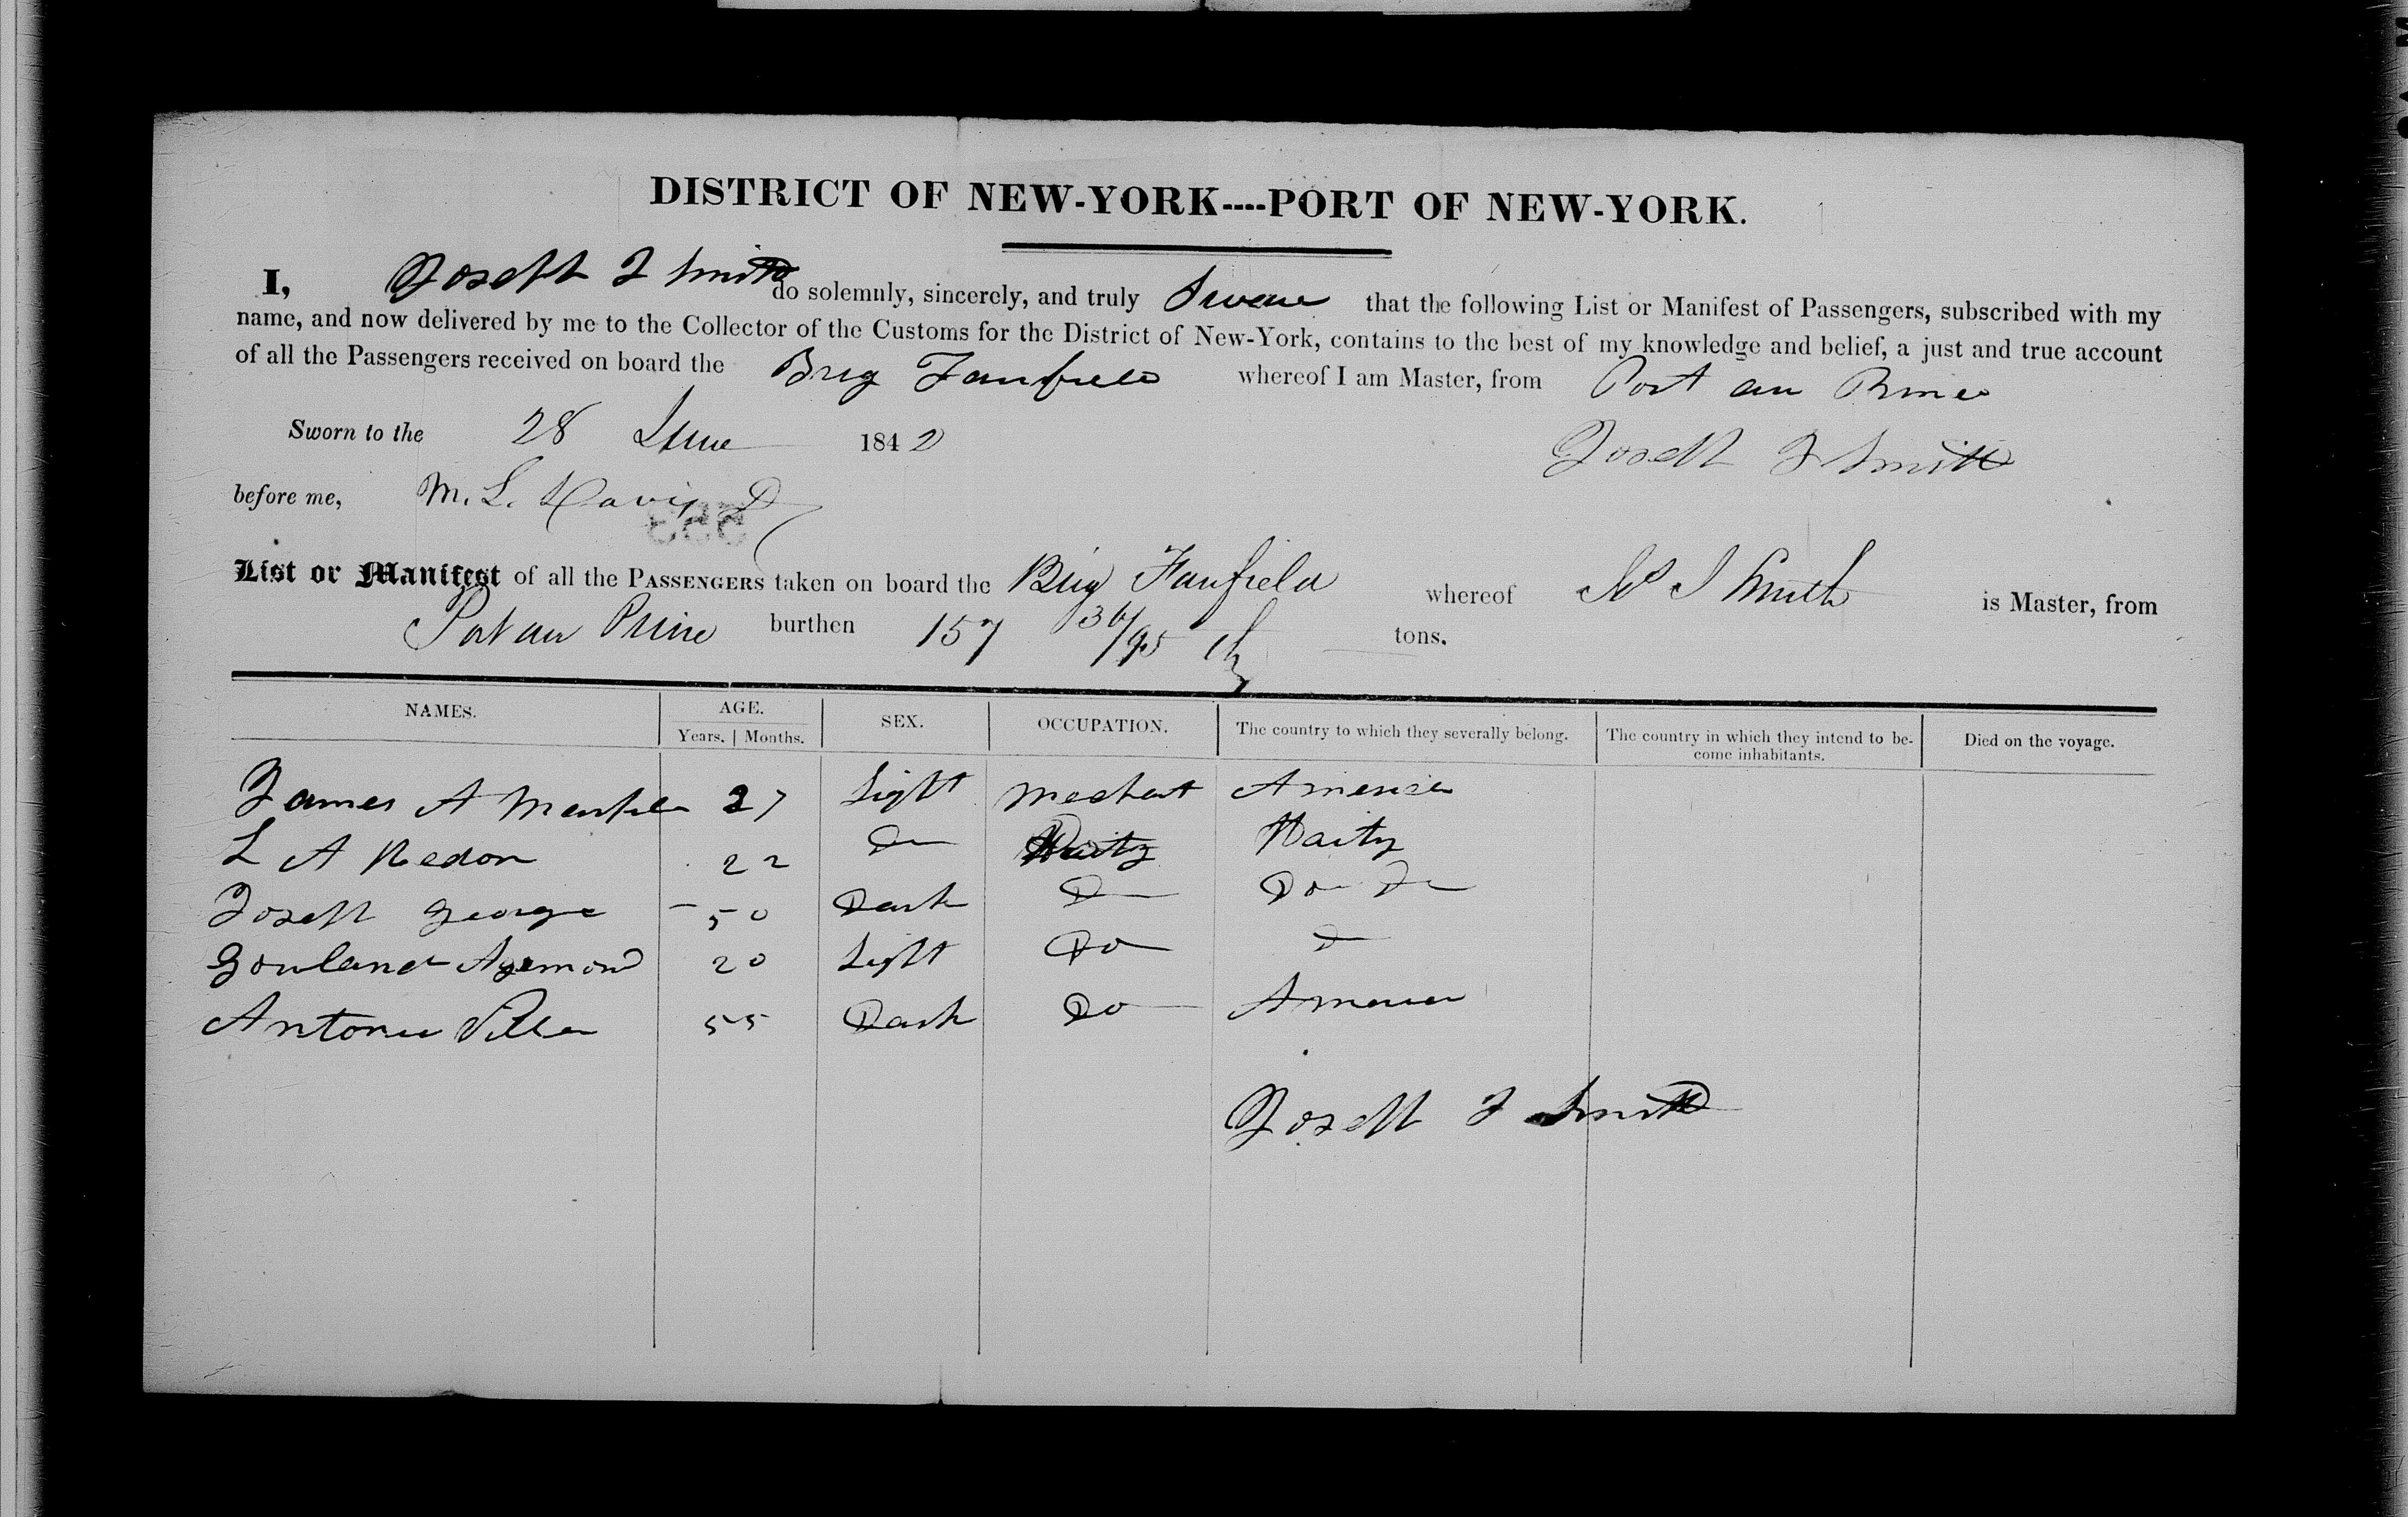 DISTRICT OF NEW-YORK----PORT OF NEW-YORK.
I, Joseph J Smith do solemnly, sincerely, and truly Swear that the following List or Manifest of Passengers, subscribed with my
name, and now delivered by me to the Collector of the Customs for the District of New-York, contains to the best of my knowledge and belief, a just and true account
of all the Passengers received on board the Brig Fanfield whereof I am Master, from Port au Prince
Sworn to the 28 June 1842
Joseph J Smith
before me, M. L. Davis
List or Manifest of all the PASSENGERS taken on board the Brig Fanfield whereof J Smith is Master, from
Port au Prine burthen 157 36/95 tons.
NAMES. AGE. SEX. OCCUPATION. The country to which they severally belong. The country in which they intend to be- Died on the voyage.
Years. | Months. come inhabitants.
James A 27 Light Mechant America
L A Redon 22 Do Haity
Joseph George 50 Dark Do Do Do
20 Light Do Do
Antonie 55 Dark Do America
Joseph J Smith